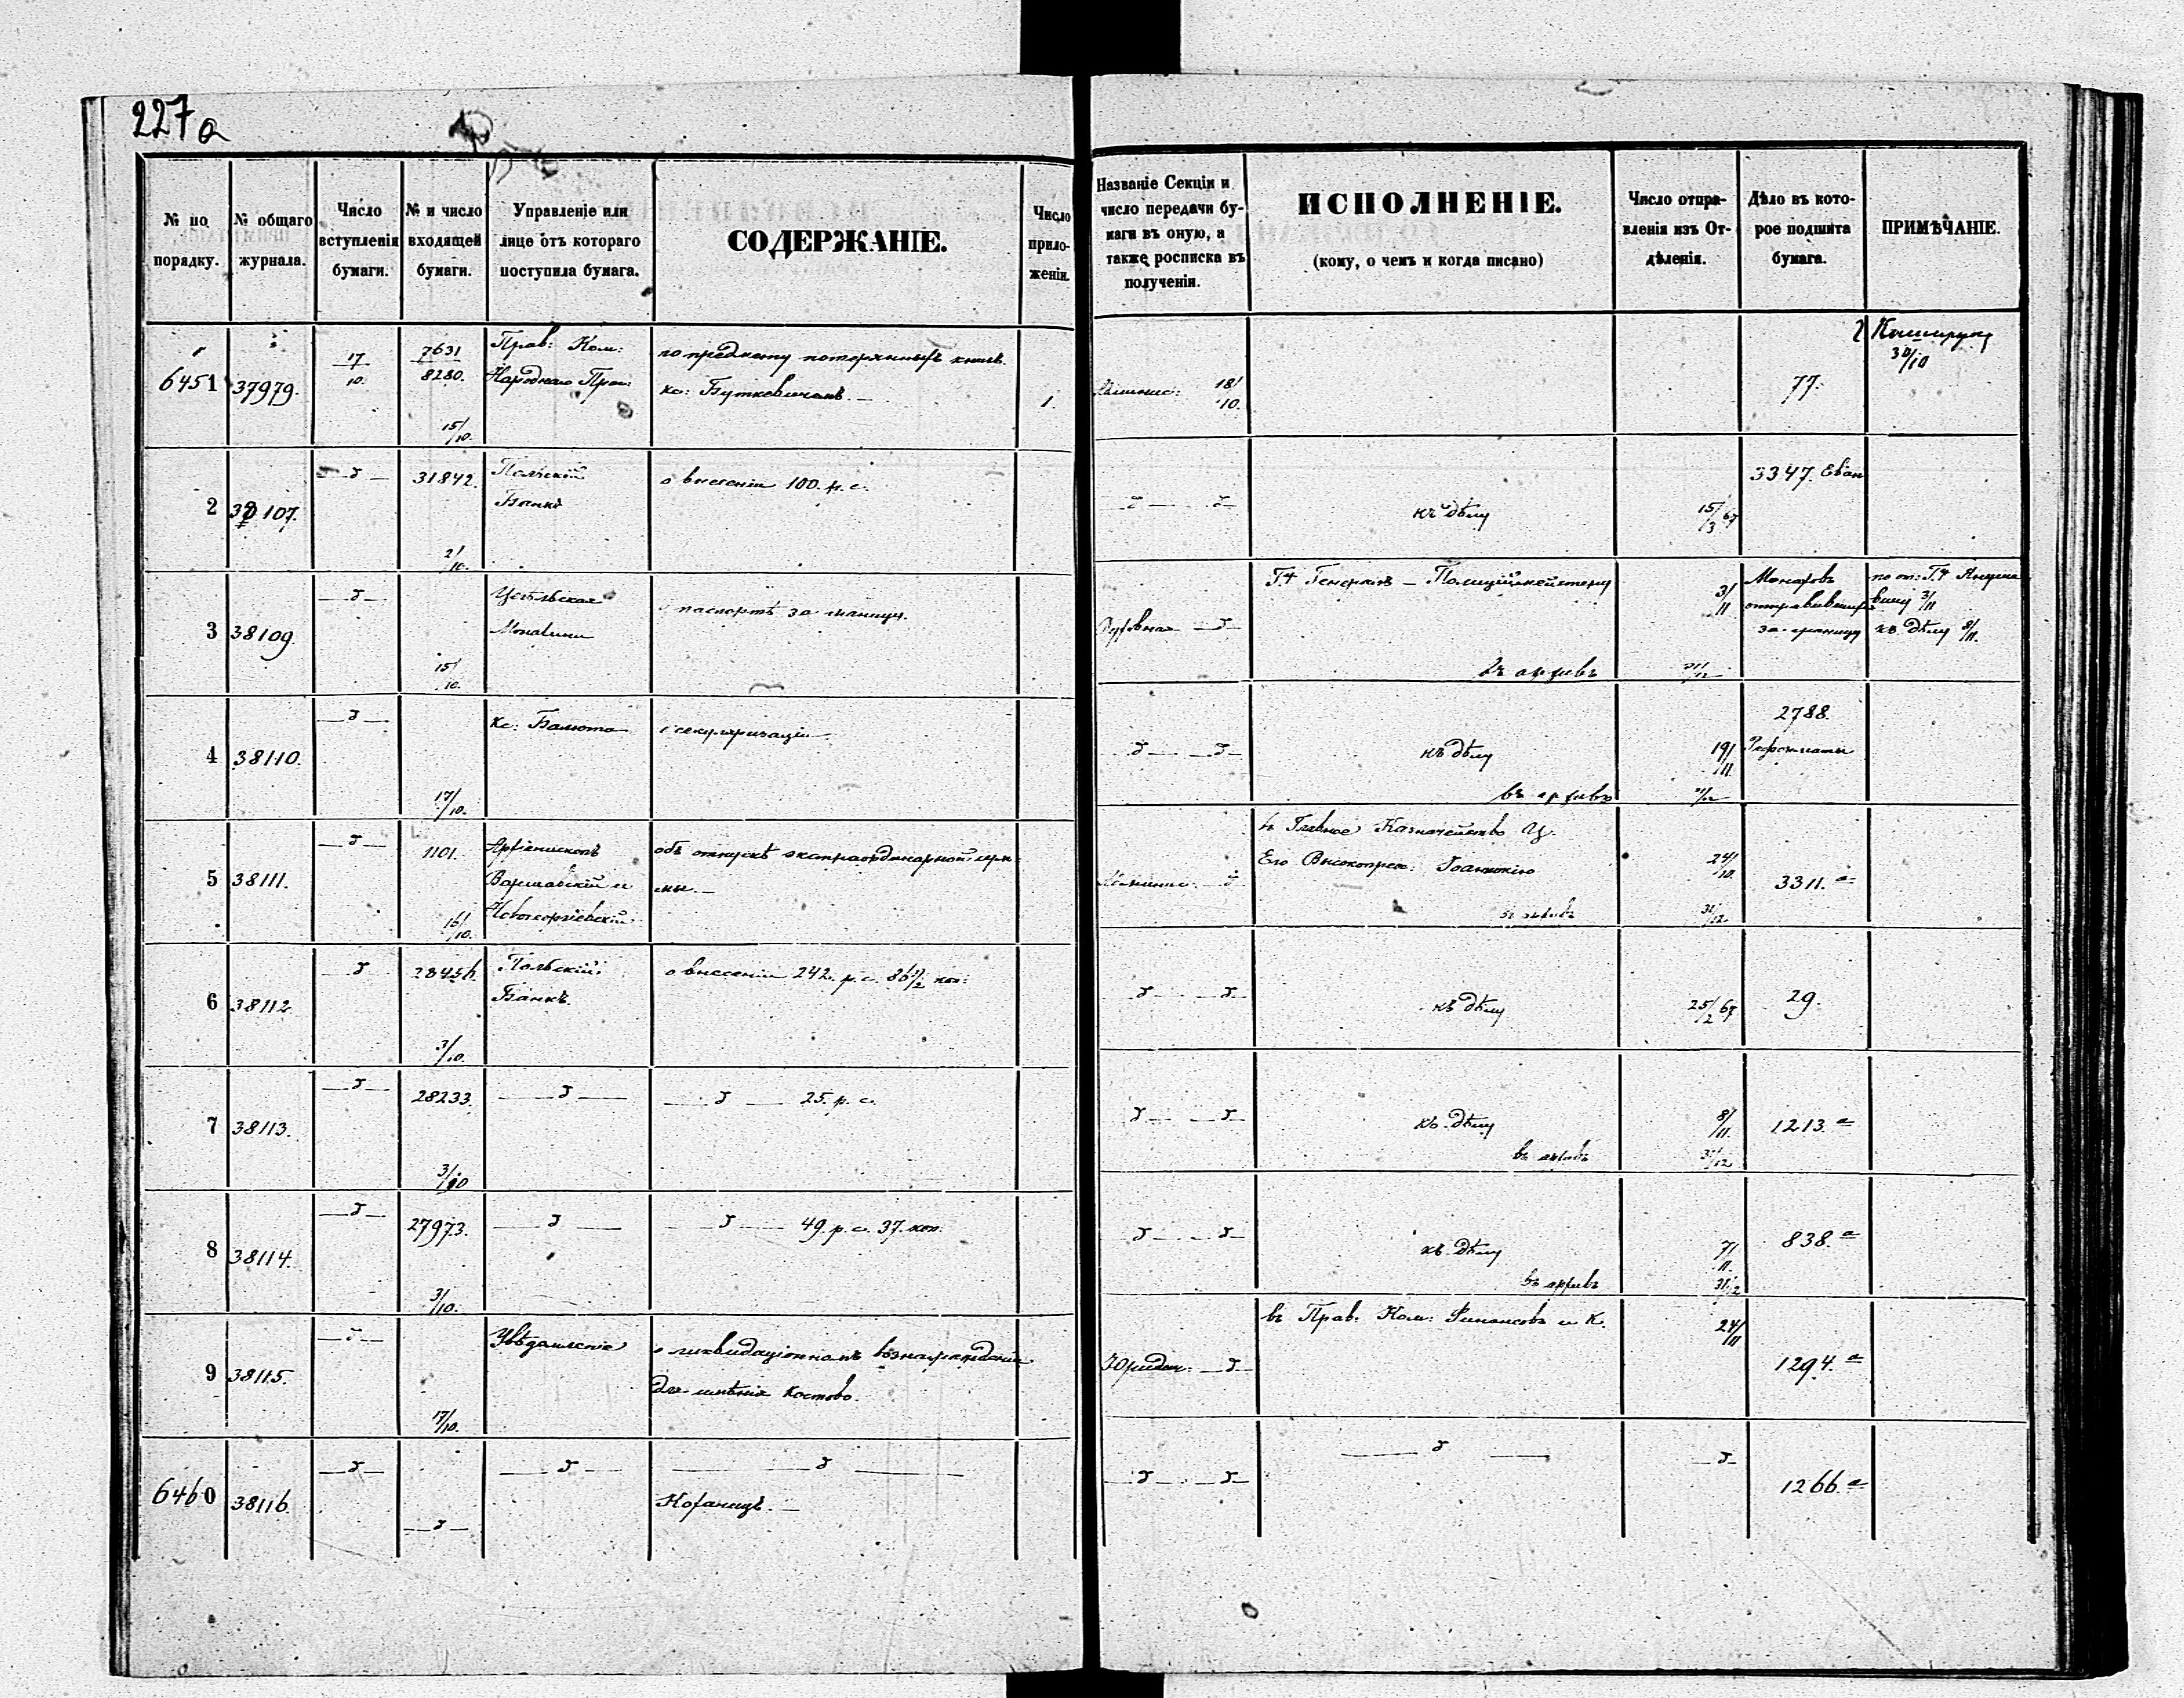 227a
№ по порядку.
№ общаго журнала.
Число вступленія бумаги.
№ и число входящей бумаги.
Управленіе или лице отъ котораго поступила бумага.
СОДЕРЖАНІЕ.
Число приложеніи.
Названіе Секціи и число передачи бумаги въ оную, а также росписка въ полученіи.
ИСПОЛНЕНІЕ.
(кому, о чемъ и когда писано)
Число отправленія изъ Отдѣленія.
Дѣло въ которое подшита бумага.
ПРИМѢЧАНІЕ.
6451 37979. 17/10. 7631 8280. 15/10. Прав: Ком:
Народнаго Прос:
по предмету потерянныхъ книгъ
кс: Буткевичемъ. 1. 18/10. 77. 30/10
2 107. 31842. 2/10. Польскій
Банкъ
о внесеніи 100. р. с.
къ дѣлу 15/3 67 3347. Еван
3 38109. 15/10.
паспортѣ за границу.
Г. Генералъ – Полиціймейстеру 3/11
отправившихъ
за-границу
къ дѣлу 8/11.
въ архивъ
4 38110. 17/10. кс:
секуляризаціи
къ дѣлу 19/11. 2788.
въ архивъ
5 38111. 1101. 16/10. Архіепископъ
Варшавскій и
Новогеоргіевскій
объ отпускѣ экстраординарной сум-
мы.
въ Главное Казначейство Ц.
Его Высокопрео: Іоаннікію 24/10. 3311. а
въ архивъ 31/12.
6 38112 28456. 3/10. Польскій
Банкъ.
о внесеніи 242. р. с. 86 1/2 коп:
къ дѣлу 25/2 67 29.
7 38113. 28233. 3/10
25. р. с.
къ дѣлу 8/11. 1213. а
въ архивъ 31/12
8 38114. 27973. 3/10.
49. р. с. 37. коп.
къ дѣлу 7/11. 838. а
въ архивъ 31/12
9 38115. 17/10. Увѣдомленіе
о ликвидаціонномъ вознагражденіи
для имѣнія Костово.
Юридич:
въ Прав. Ком: Финансовъ и К. 24/11 1294. а
6460 38116.
1266. а